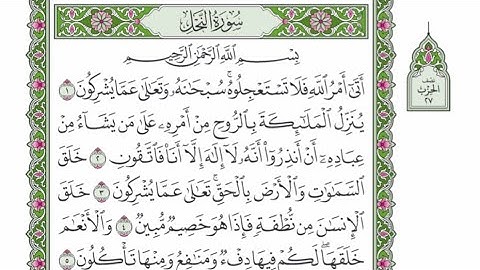 سُورَةُ النَّحْلِ
بِسْمِ اللَّهِ الرَّحْمَٰنِ الرَّحِيمِ
أَتَىٰٓ أَمْرُ ٱللَّهِ فَلَا تَسْتَعْجِلُوهُ ۚ سُبْحَٰنَهُۥ وَتَعَٰلَىٰ عَمَّا يُشْرِكُونَ ١
يُنَزِّلُ ٱلْمَلَٰٓئِكَةَ بِٱلرُّوحِ مِنْ أَمْرِهِۦ عَلَىٰ مَن يَشَآءُ مِنْ
عِبَادِهِۦٓ أَنْ أَنذِرُوٓا۟ أَنَّهُۥ لَآ إِلَٰهَ إِلَّآ أَنَا۠ فَٱتَّقُونِ ٢ خَلَقَ
ٱلسَّمَٰوَٰتِ وَٱلْأَرْضَ بِٱلْحَقِّ ۚ تَعَٰلَىٰ عَمَّا يُشْرِكُونَ ٣ خَلَقَ
ٱلْإِنسَٰنَ مِن نُّطْفَةٍ فَإِذَا هُوَ خَصِيمٌ مُّبِينٌ ٤ وَٱلْأَنْعَٰمَ
خَلَقَهَا ۗ لَكُمْ فِيهَا دِفْءٌ وَمَنَٰفِعُ وَمِنْهَا تَأْكُلُونَ ٥
نصف
الحزب
٢٧